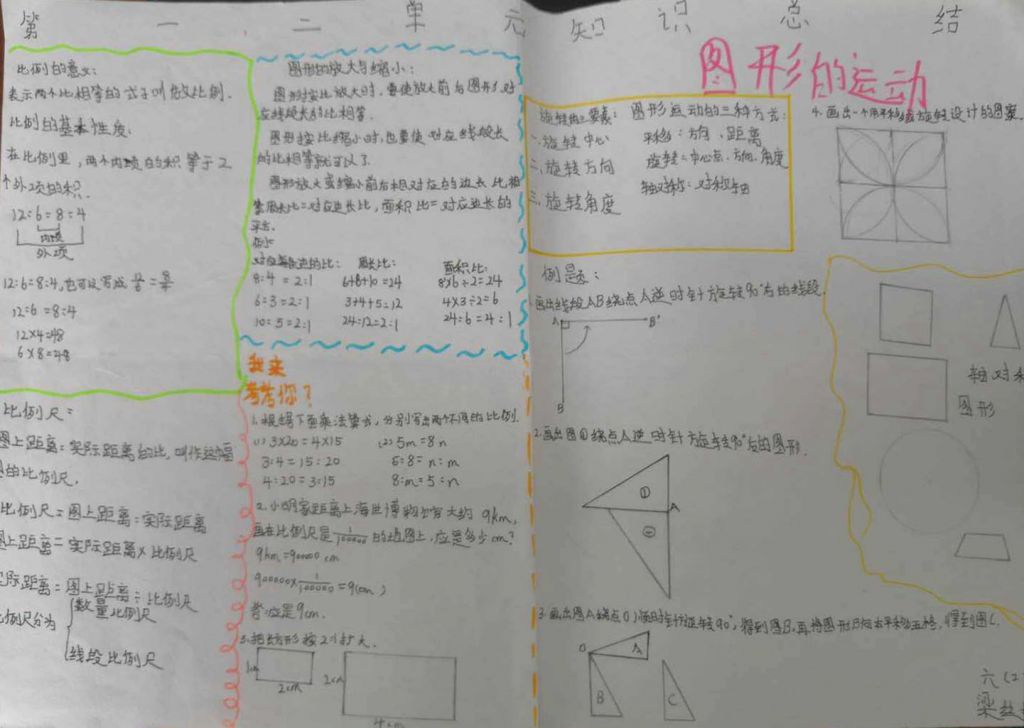 第一二单元知识总结
比例的意义:
表示两个比相等的式子叫做比例.
比例的基本性质:
在比例里,两个内项的积等于2
个外项的积.
12:6=8:4
内项
外项
12:6=8:4,也可以写成
12:6=8:4
12×4=48
6×8=48
比例尺:
图上距离:实际距离的比,叫作这幅
图的比例尺.
比例尺=图上距离:实际距离
图上距离=实际距离×比例尺
实际距离=图上距离÷比例尺
比例尺分为
数量比例尺
线段比例尺
图形的放大与缩小:
图形按比放大时,要使放大前后图形对
应线段长的比相等.
图形按比缩小时,也要使对应线段长
的比相等就可以了
图形放大或缩小前后相对应的边长比相
等周长比=对应边长比,面积比=对应边长的
平方.
例:
对应边长的比: 周长比: 面积比:
8:4=2:1 6+8+10=24 8×6÷2=24
6:3=2:1 3+4+5=12 4×3÷2=6
10:5=2:1 24:12=2:1 24:6=4:1
我来
考考你?
1.根据下面乘法算式,分别写出两个不同的比例.
(1)3×20=4×15 (2)5m=8n
3:4=15:20 5:8=n:m
4:20=3:15 8:m=5:n
2.小明家距离上海世博物馆大约9km,
画在比例尺是1/100000的地图上,应是多少cm?
9km=900000cm
900000×1/100000=9(cm)
答:应是9cm.
3.把长方形按2:1扩大.
1cm
2cm
2cm
4cm
图形的运动
旋转的三要素:
一.旋转中心
二.旋转方向
三.旋转角度
图形运动的三种方式:
平移:方向,距离
旋转:中心点,方向,角度
轴对称:对称轴
4.画出一个用平移或旋转设计的图案
例题:
1.画出线段AB绕点A逆时针旋转90°后的线段.
A
B'
B
2.画出图①绕点A逆时针旋转90°后的图形.
①
A
②
3.画出图A绕点O顺时针旋转90°,得到图B,再将图形B向右平移五格,得到图C.
O
A
B
C
轴对称
图形
六(2
梁